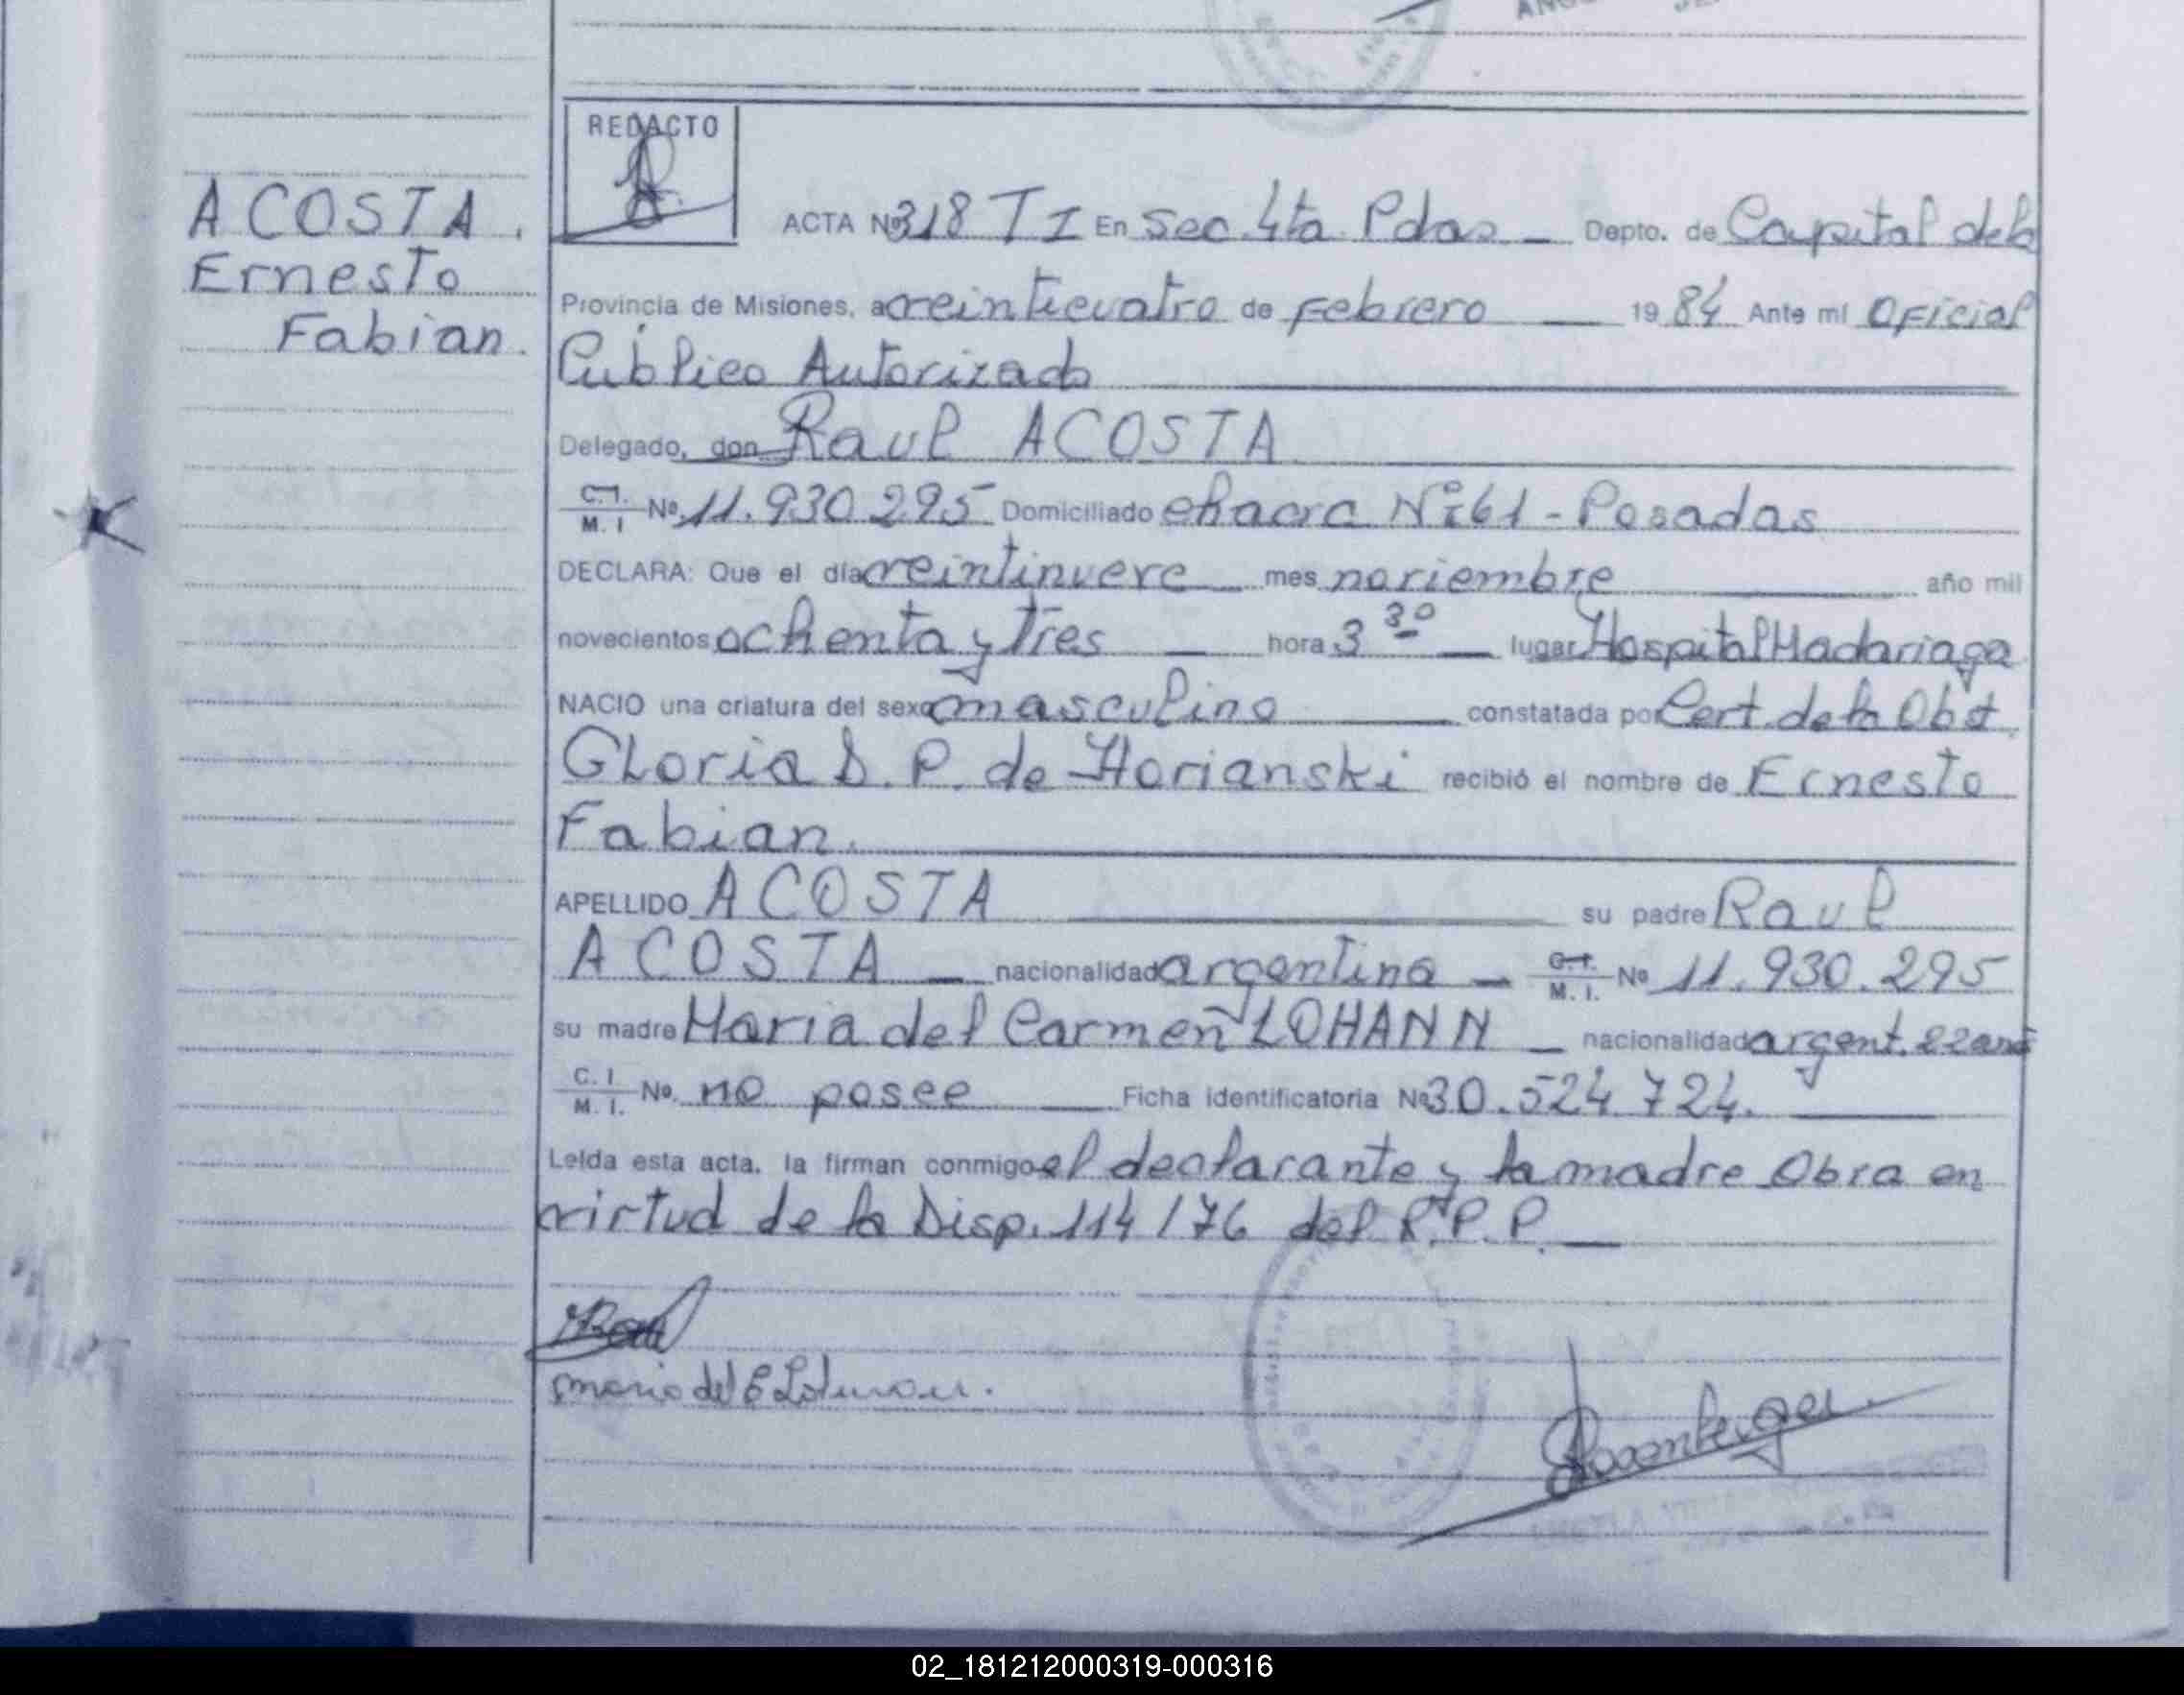 REDACTO
ACOSTA.
Ernesto
Fabian.
ACTA Nº 318 TI En Sec. 4ta Pdas — Depto. de Capital de la
Provincia de Misiones, a veinticuatro de Febrero — 1984 Ante mí Oficial
Público Autorizado
Delegado, don Raul ACOSTA
C.I. M. I Nº 11.930.295 Domiciliado chacra Nº 61 - Posadas
DECLARA: Que el día veintinueve mes noviembre — año mil
novecientos ochenta y Tres — hora 3 30 — lugar Hospital Madariaga
NACIO una criatura del sexo masculino — constatada por Cert. de la Obst.
Gloria D. P. de Horianski recibió el nombre de Ernesto
Fabian.
APELLIDO ACOSTA — su padre Raul
ACOSTA — nacionalidad argentina — C.I. M. I. Nº 11.930.295
su madre Maria del Carmen LOHANN — nacionalidad argent. 22 años
C. I M. I. Nº no posee — Ficha identificatoria Nº 30.524.724. —
Leída esta acta, la firman conmigo el declarante y la madre Obra en
virtud de la Disp. 114/76 del R.P.P. —
Maria del C Lohmann.
02_181212000319-000316